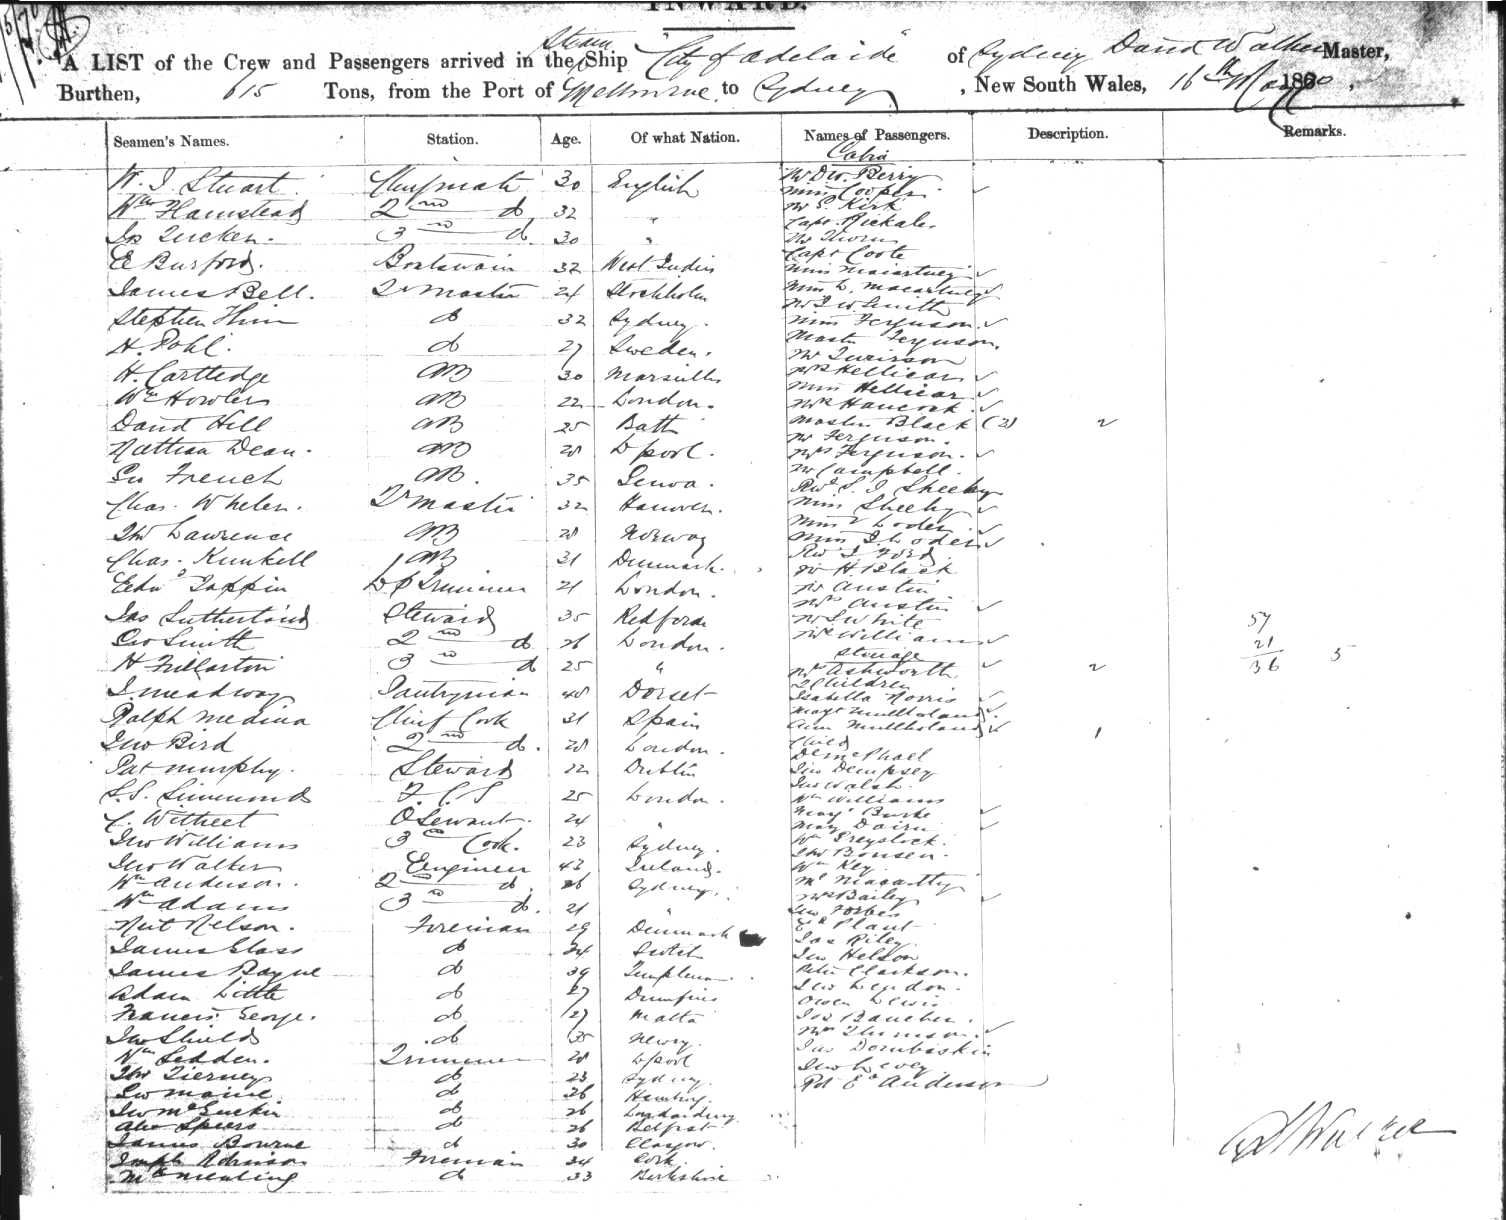 INWARD.
A LIST of the Crew and Passengers arrived in the Steam Ship City of Adelaide of Sydney David Walker Master,
Burthen, 615 Tons, from the Port of Melbourne to Sydney, New South Wales, 16th May 1870.
Seamen's Names. Station. Age. Of what Nation. Names of Passengers. Description. Remarks.
W. J. Stuart Chief mate 30 English
Wm Hamstead 2nd do 32 "
Jas Tucker. 3rd do. 30 "
E Burford. Boatswain 32 West Indies
James Bell. Qr Master 24 Stockholm
Stephen do 32 Sydney.
H. Pohl. do 27 Sweden.
H. Cartledge AB 30 Marseilles
Wm Howlers AB 22 London.
David Hill AB 25 Bath
Nathan Dean. AB 28 Lpool.
Geo French AB. 35 Genoa.
Chas. Whelen. Qr Master 32 Hanover.
Thos Lawrence AB 28 Norway
Chas. Kunkell AB 31 Denmark.
Edwd Tappin Lp Trimmer 21 London.
Jas Sutherland Steward 35 Redford
Geo Smith 2nd do 26 London.
H Fullarton 3rd do 25 "
J. Meadway Pantryman 48 Dorset
Ralph Medina Chief Cook 31 Spain
Jno Bird 2nd do. 28 London.
Pat Murphy. Steward 22 Dublin
S. S. Simmonds F. C. S 25 London.
C. Witheet O Servant. 24 "
Jno Williams 3rd Cook. 23 Sydney.
Jno Walker Engineer 43 Ireland.
Wm Anderson. 2nd do 26 Sydney.
Wm Adams 3rd do. 21 "
Neil Nelson. Fireman 29 Denmark
James Glass do 24 Scotch
James Bayne do 39
Adam Little do 27 Dumfries
Francis George. do 27 Malta
Jno Shields do 35 Newry.
Wm Sedden. Trimmer 28 Lpool
Thos Tierney do 23 Sydney.
Geo Maine do 26 Hamburg.
Jno McGuckin do 26 Londonderry
Alex Speers do 26 Belfast
James Bourne do 30 Glasgow.
Joseph Robinson Fireman 34 Cork
Mealing do 33 Berkshire
Cabin
Mr Dw. Berry
Miss Cooper
Mr S. Kirk
Capt. Rickales
Mr Thorn
Capt Coote
Miss Macartney
Miss L. Macartney
Mr J W Smith
Miss Ferguson.
Master Ferguson.
Mr
Mrs Hellicar
Miss Hellicar
Mrs Hancock.
Master Black (2) 2
Mr Ferguson.
Mrs Ferguson.
Mr Campbell.
Revd S. J Sheehy
Miss Sheehy
Miss Loder
Miss J. Loder
Rev J Ford
Mr H. Black
Mr Austin
Mrs Austin
Mr S White
Mrs Williams
Steerage
Mrs Ashworth
2 Children 2
Isabella Norris
Margt Mullholand
Ann Mullholand
Child 1
Jno Dempsey
Jno Walsh.
Wm Williams
Mary Burke
Mary
Wm Greystock.
Thos Bonsen.
Wm Key
Mr Macarthy
Mrs Bailey
Geo Forbes
Ed Plant
Jas Riley
Jno Helson
Peter Clarkson.
Jno Leydon.
Owen Lewis
Jos Baucher.
Mrs Thomson.
Jno
Jno Levey
Rd Ed Anderson
57
21
36 5